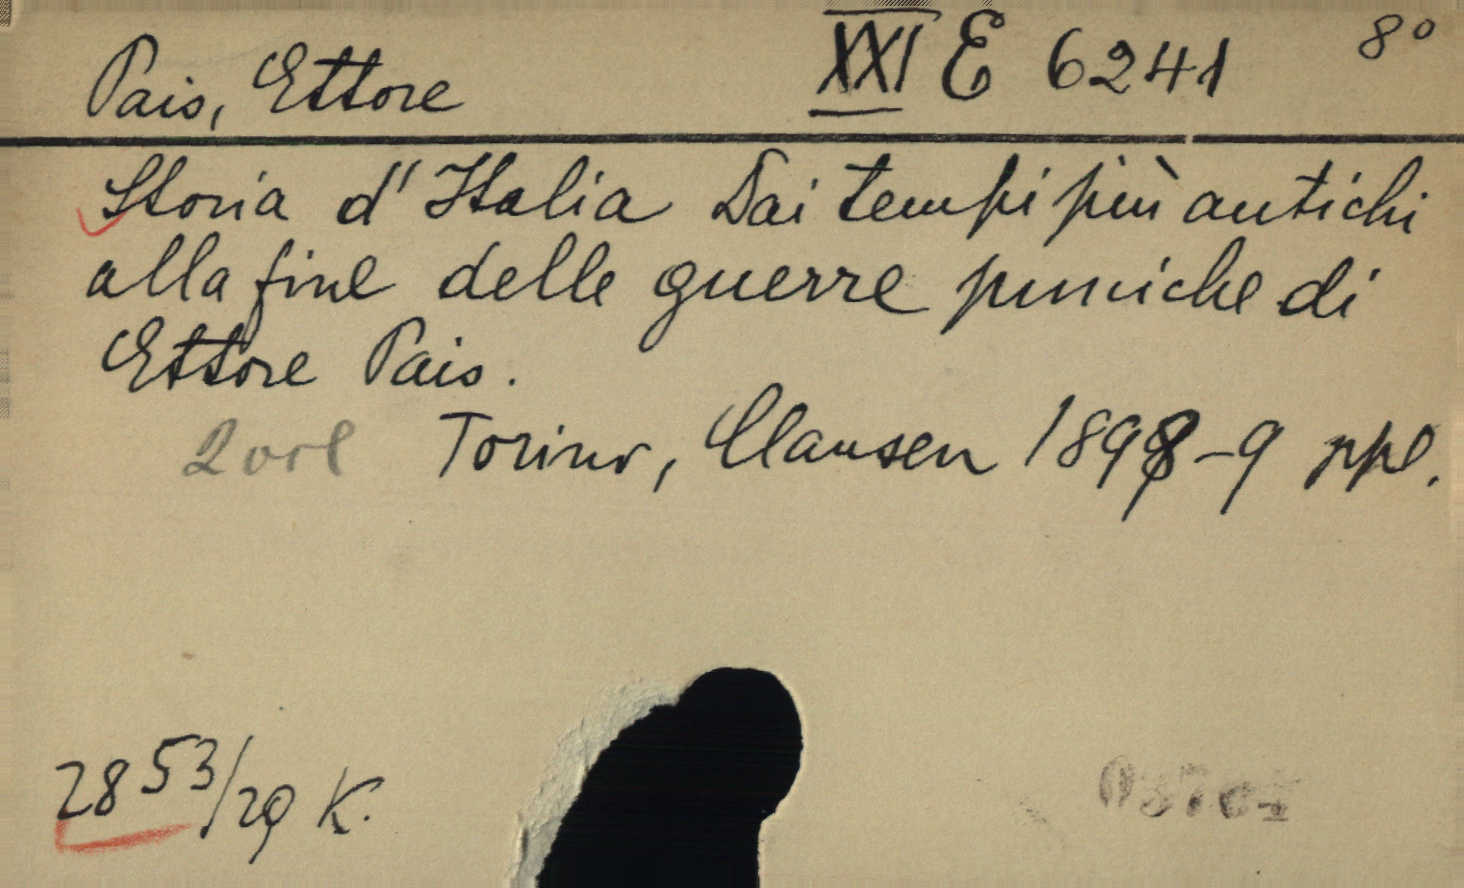 Pais, Ettore XXI E 6241 8°
Storia d'Italia Dai tempi più antichi
alla fine delle guerre puniche di
Ettore Pais.
2 vol Torino, Clausen 1898-9 ppl.
2853/29 K.